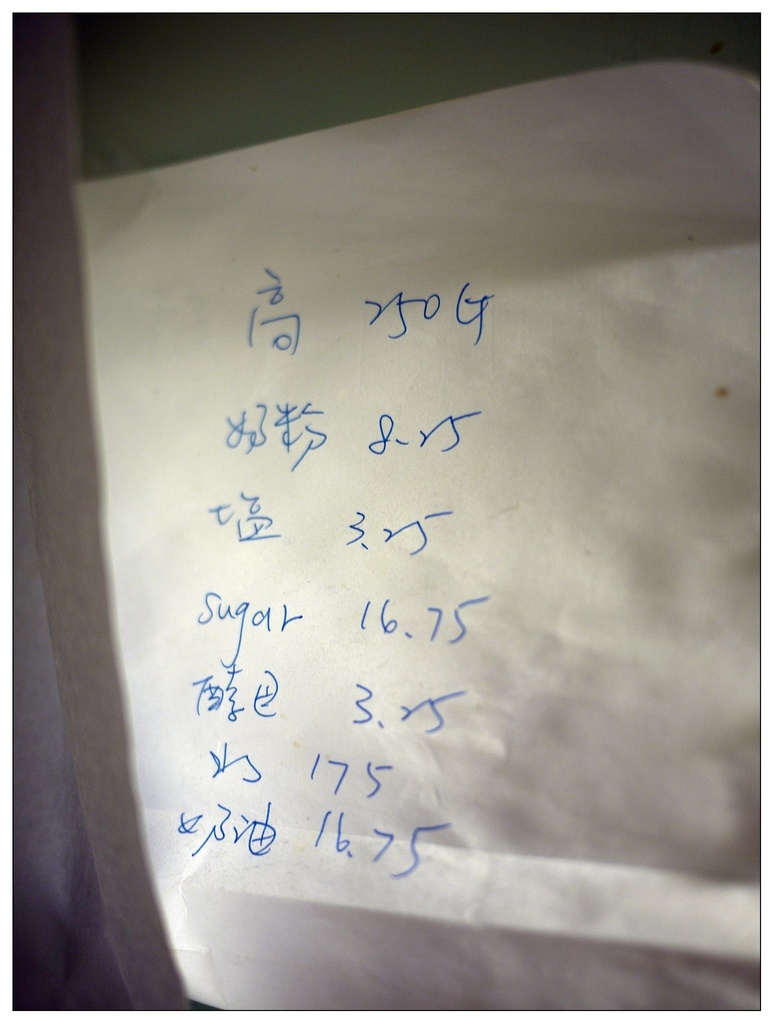 高 250G
奶粉 8.25
塩 3.25
Sugar 16.75
酵母 3.25
水 175
奶油 16.75